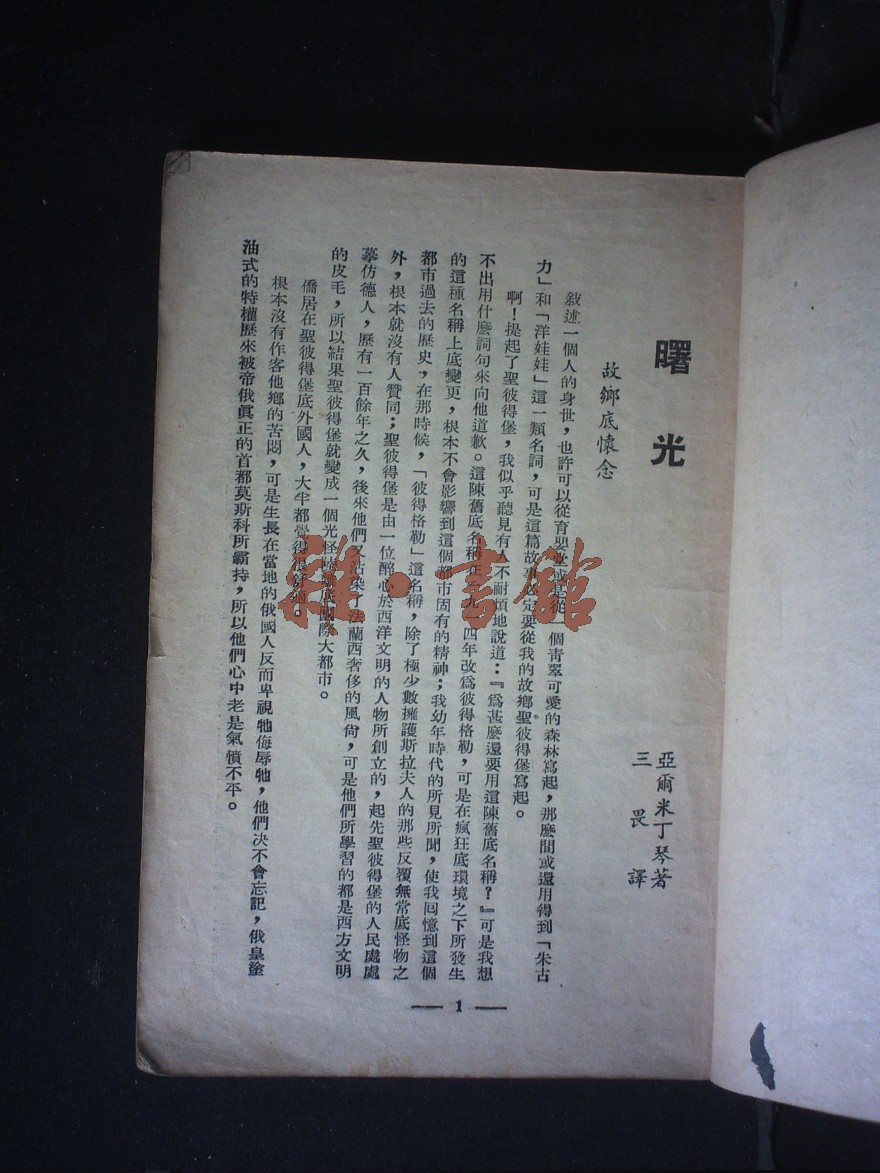 曙光
亞爾米丁琴著
三畏譯
故鄉底懷念
敍述一個人的身世，也許可以從育嬰堂或是從一個青翠可愛的森林寫起，那麽間或還用得到「朱古
力」和「洋娃娃」這一類名詞，可是這篇故事必定要從我的故鄉聖彼得堡寫起。
啊！提起了聖彼得堡，我似乎聽見有人不耐煩地說道：『爲甚麽還要用這陳舊底名稱？』可是我想
不出用什麽詞句來向他道歉。這陳舊底名稱在一九一四年改爲彼得格勒，可是在瘋狂底環境之下所發生
的這種名稱上底變更，根本不會影響到這個都市固有的精神；我幼年時代的所見所聞，使我回憶到這個
都市過去的歷史，在那時候，「彼得格勒」這名稱，除了極少數擁護斯拉夫人的那些反覆無常底怪物之
外，根本就沒有人贊同；聖彼得堡是由一位醉心於西洋文明的人物所創立的，起先聖彼得堡的人民處處
摹仿德人，歷有一百餘年之久，後來他們又沾染了法蘭西奢侈的風尙，可是他們所學習的都是西方文明
的皮毛，所以結果聖彼得堡就變成一個光怪陸離底國際大都市。
僑居在聖彼得堡底外國人，大半都覺得很舒適。
根本沒有作客他鄉的苦悶，可是生長在當地的俄國人反而卑視牠侮辱牠，他們決不會忘記，俄皇塗
油式的特權歷來被帝俄眞正的首都莫斯科所霸持，所以他們心中老是氣憤不平。
— 1 —
雜·書館